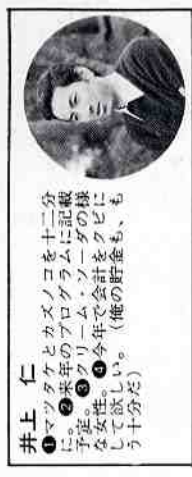 井上 仁
❶マツタケとカズノコを十二分
に。❷来年のプログラムに記載
予定。❸クリーム・ソーダの様
な女性。❹今年で会計をクビに
して欲しい。(俺の貯金も、も
う十分だ)